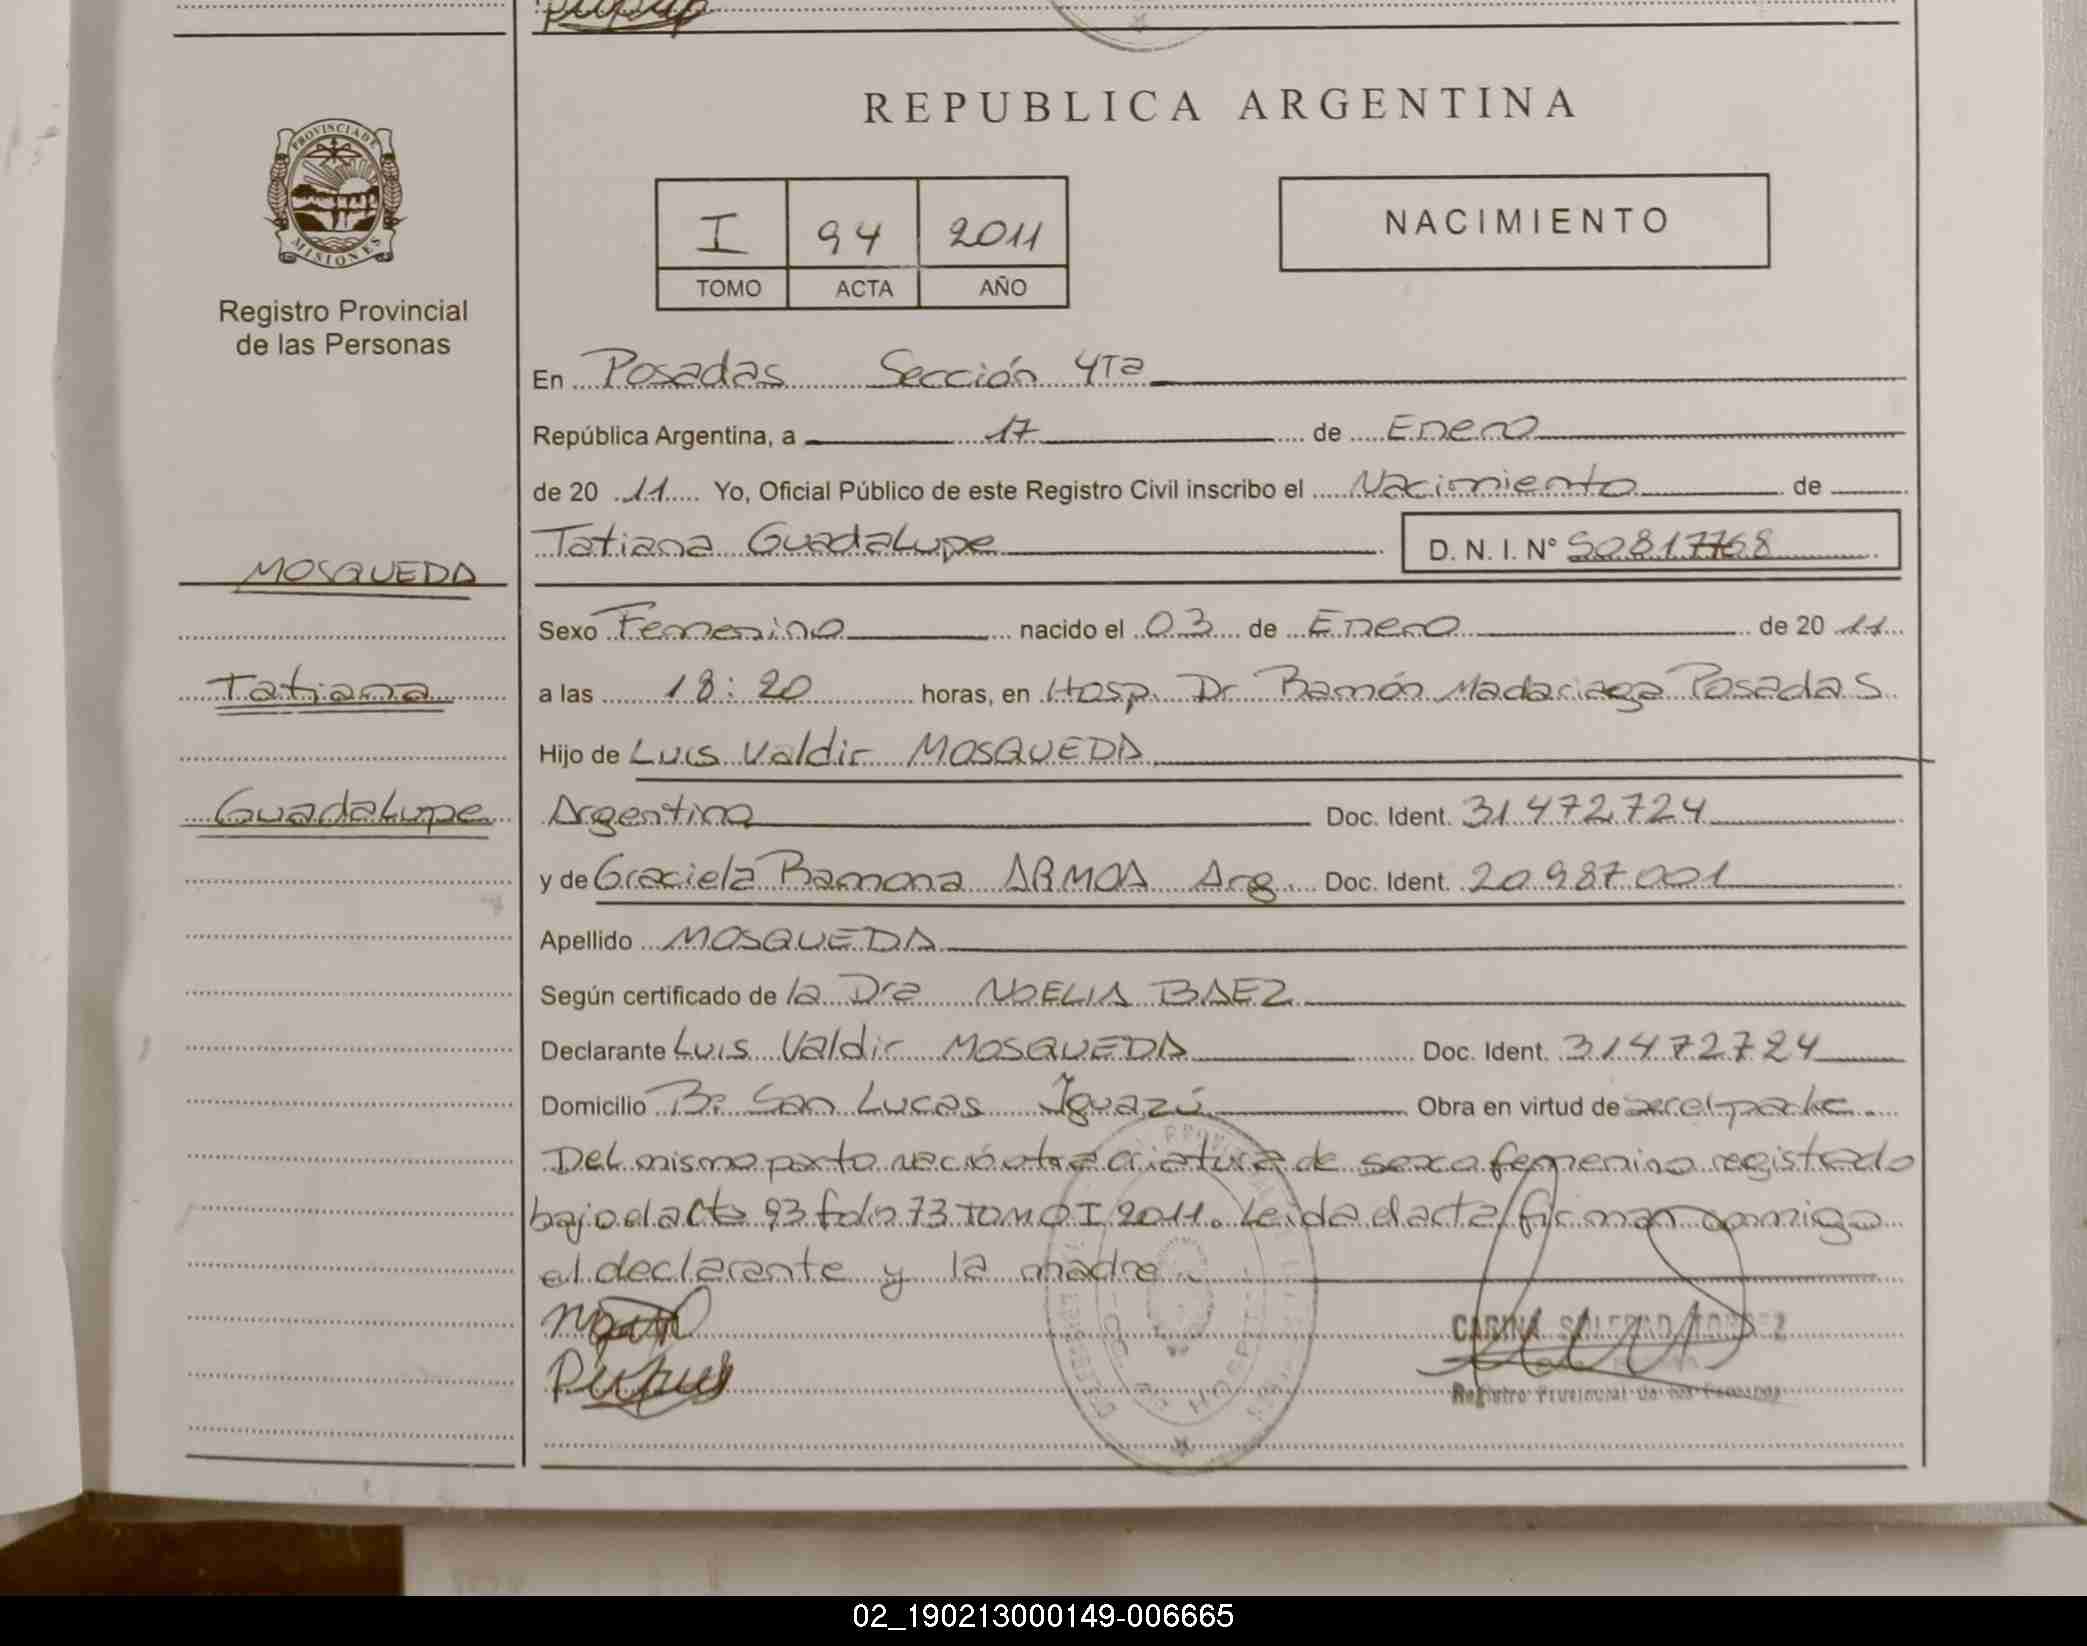 REPUBLICA ARGENTINA
PROVINCIA DE
MISIONES
Registro Provincial
de las Personas
I 94 2011
TOMO ACTA AÑO
NACIMIENTO
En Posadas Sección 4Ta
República Argentina, a 17 de Enero
de 20 11 Yo, Oficial Público de este Registro Civil inscribo el Nacimiento de
Tatiana Guadalupe D. N. I. N° 50817768
MOSQUEDA
Sexo Femenino nacido el 03 de Enero de 20 11
Tatiana
a las 18:20 horas, en Hosp. Dr Ramón Madariaga Posadas
Hijo de Luis Valdir MOSQUEDA
Guadalupe
Argentino Doc. Ident. 31472724
y de Graciela Ramona ARMOA Arg. Doc. Ident. 20987001
Apellido MOSQUEDA
Según certificado de la Dra NOELIA BAEZ
Declarante Luis Valdir MOSQUEDA Doc. Ident. 31472724
Domicilio Bº San Lucas Iguazú Obra en virtud de ser el padre.
Del mismo parto nació otra criatura de sexo femenino registrado
bajo el acta 93 folio 73 TOMO I 2011. Leida el acta firman conmigo
el declarante y la madre
HOSPIT
CARINA SOLEDAD
Registro Provincial de las Personas
02_190213000149-006665